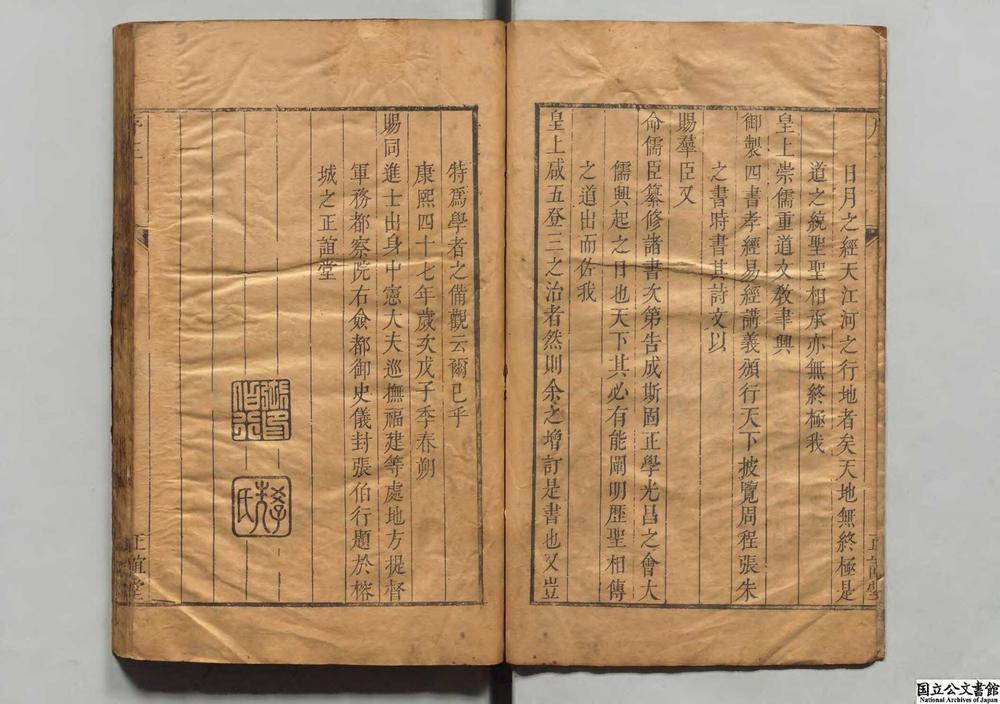 日月之經天江河之行地者矣天地無終極是
道之統聖聖相承亦無終極我
皇上崇儒重道文敎聿興
御製四書孝經易經講義頒行天下披覽周程張朱
之書時書其詩文以
賜羣臣又
命儒臣纂修諸書次第告成斯固正學光昌之會大
儒興起之日也天下其必有能闡明歷聖相傳
之道出而佐我
皇上咸五登三之治者然則余之增訂是書也又豈
正誼堂
特爲學者之備觀云爾已乎
康熙四十七年歲次戊子季春朔
賜同進士出身中憲大夫巡撫福建等處地方提督
軍務都察院右僉都御史儀封張伯行題於榕
城之正誼堂
張伯行
孝先氏
正誼堂
国立公文書館
National Archives of Japan